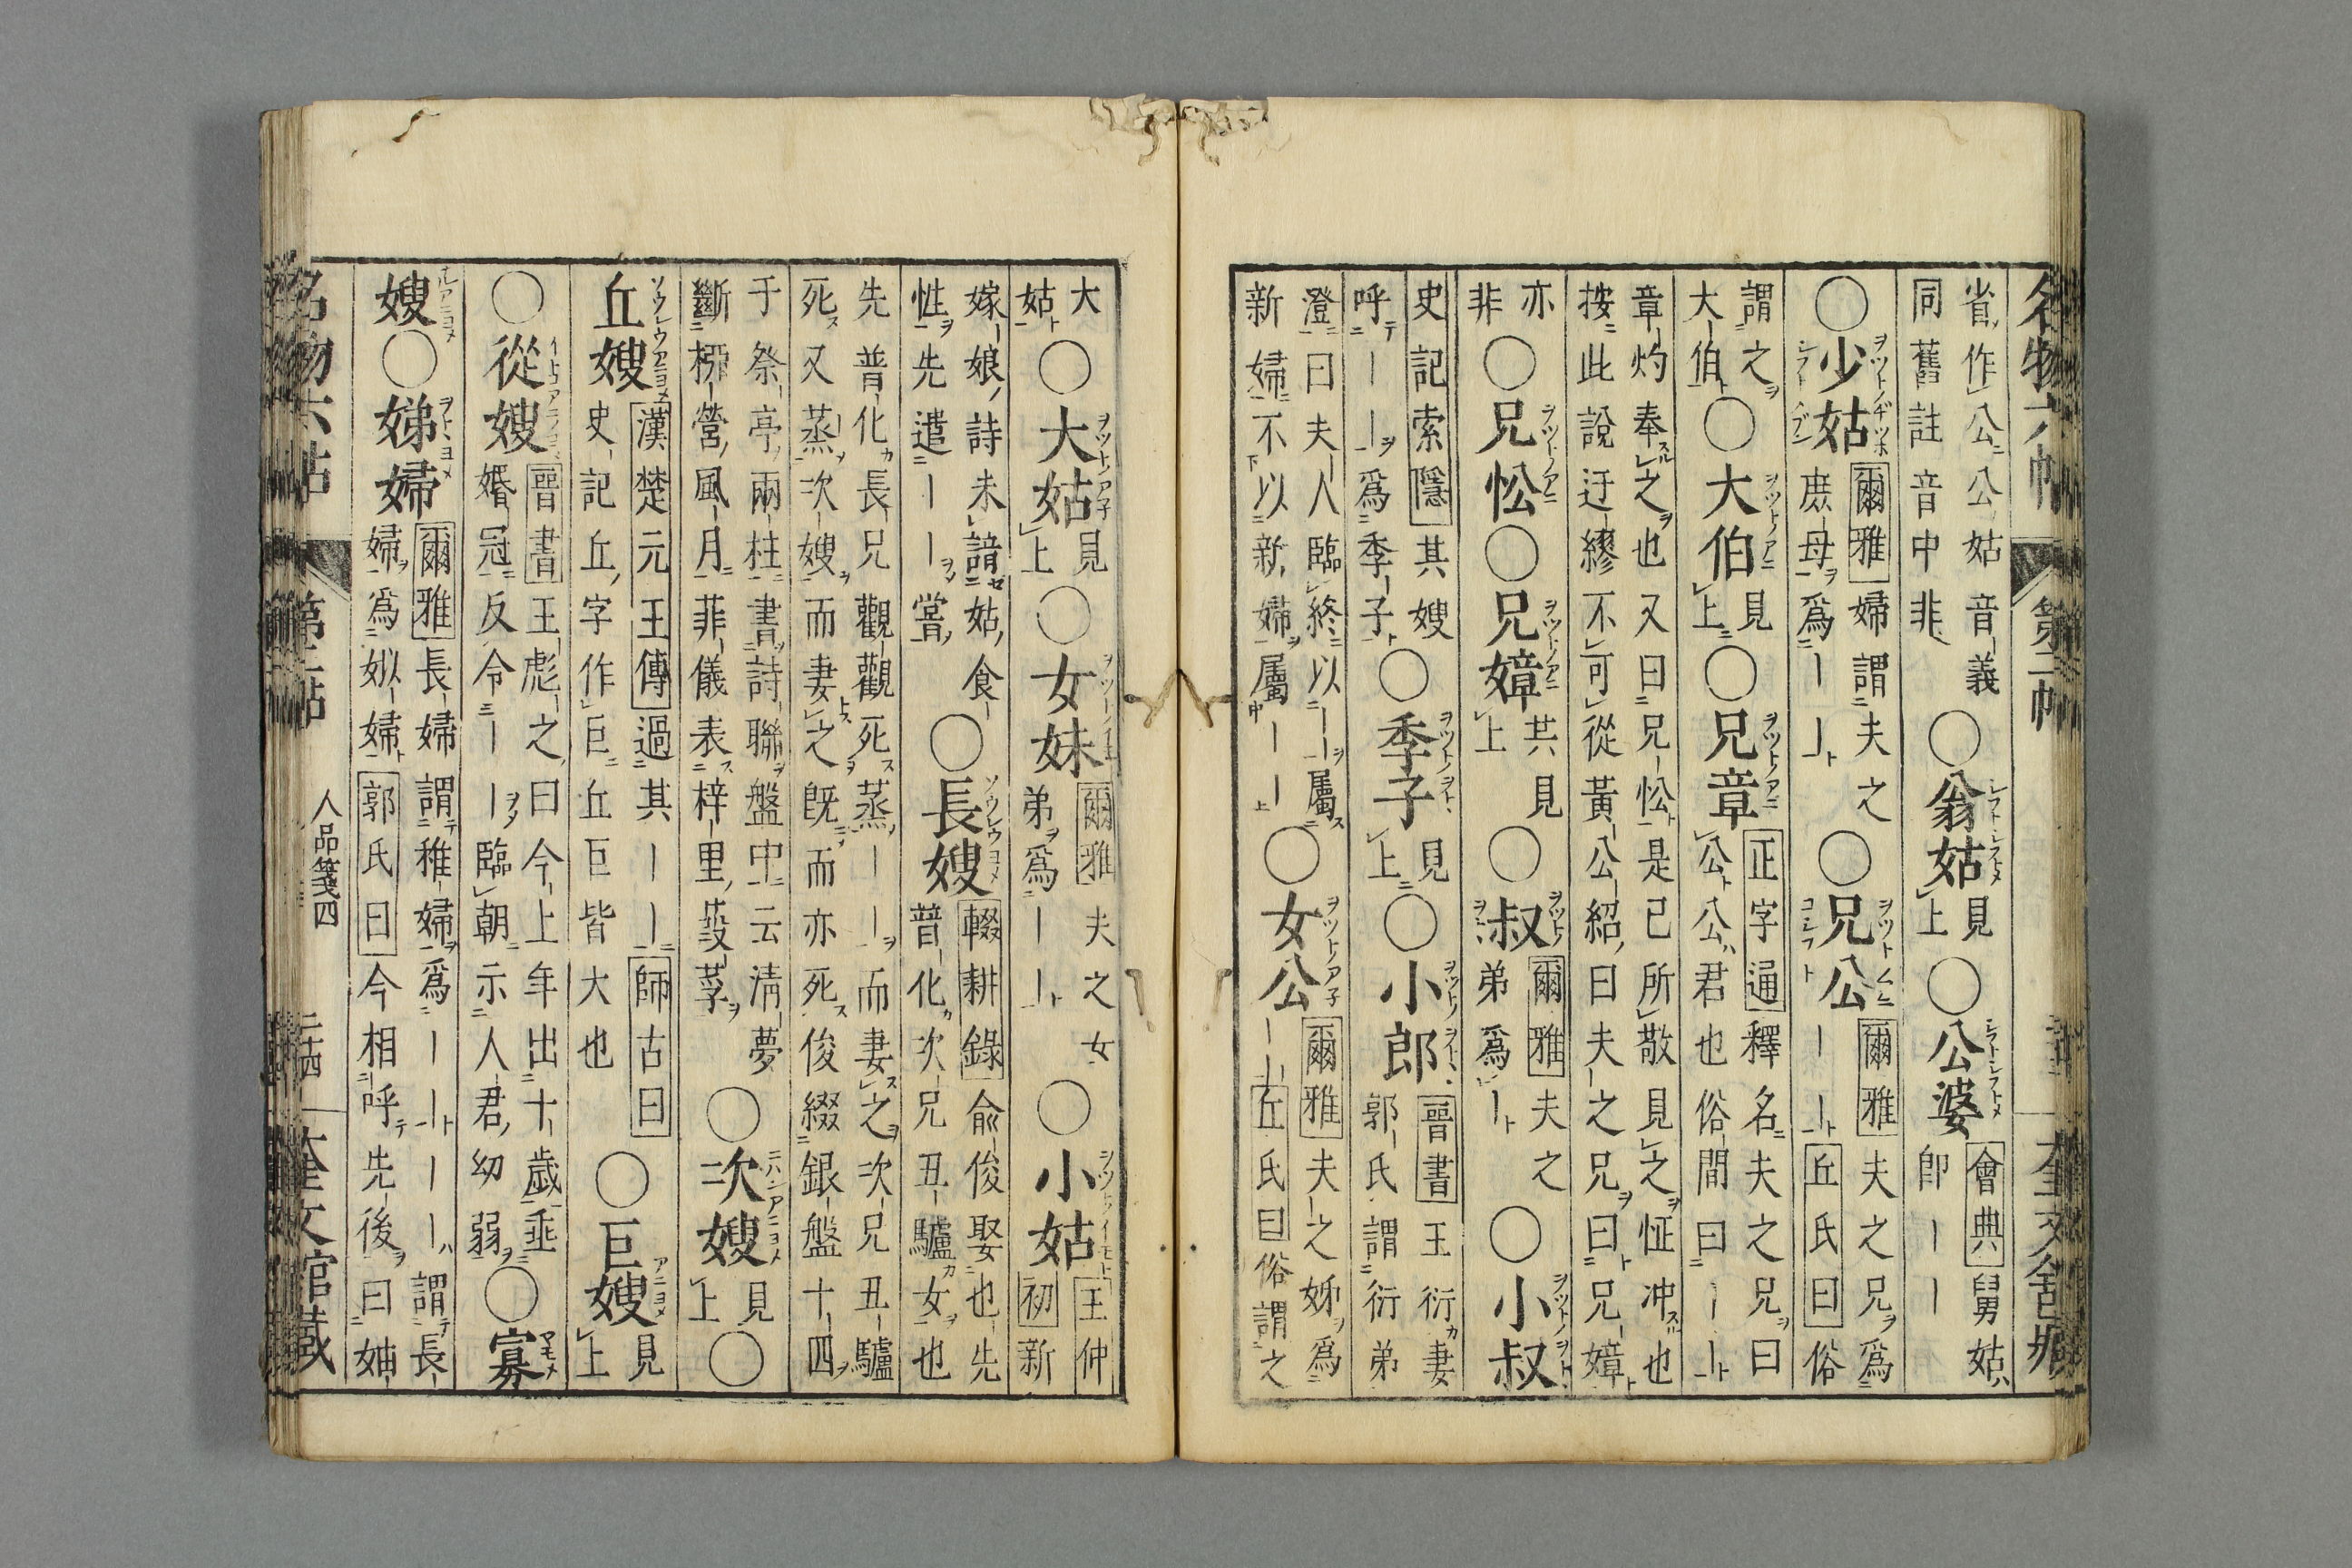 名物六帖 第二帖
省作公公姑音義
同舊註音中非
○翁姑 見上 ○公婆 會典舅姑
即丨丨
○少姑 爾雅婦謂夫之
庶母爲丨丨
○兄公 爾雅夫之兄爲
丨丨丘氏曰俗
謂之
大伯
○大伯 見上 ○兄章 正字通釋名夫之兄曰
公公君也俗間曰丨丨
章灼奉之也又曰兄忪是已所敬見之怔冲也
按此說迂繆不可從黃公紹曰夫之兄曰兄嫜
亦
非
○兄忪 ○兄嫜 共見
上
○叔 爾雅夫之
弟爲丨
○小叔
史記索隱其嫂
呼丨丨爲季子
○季子 見上 ○小郎 晉書王衍妻
郭氏謂衍弟
澄曰夫人臨終以丨丨屬
新婦不以新婦屬丨丨
○女公 爾雅夫之姊爲
丨丨丘氏曰俗謂之
大
姑
○大姑 見上 ○女妹 爾雅夫之女
弟爲丨丨
○小姑 王仲
初新
嫁娘詩未諳姑食
性先遣丨丨嘗
○長嫂 輟耕錄俞俊娶也先
普化次兄丑驢女也
先普化長兄觀觀死蒸丨丨而妻之次兄丑驢
死又蒸次嫂而妻之既而亦死俊綴銀盤十四
于祭亭兩柱書詩聯盤中云淸夢
斷栁營風月菲儀表梓里葭莩
○次嫂 見上 ○
丘嫂 漢楚元王傳過其丨丨師古曰
史記丘字作巨丘巨皆大也
○巨嫂 見上
○從嫂 晉書王彪之曰今上年出十歲垂
婚冠反令丨丨臨朝示人君幼弱
○寡
嫂 ○娣婦 爾雅長婦謂稚婦爲丨丨丨丨謂長
婦爲姒婦郭氏曰今相呼先後曰妯
名物六帖 第二帖 人品箋四 二十四 奎文館藏